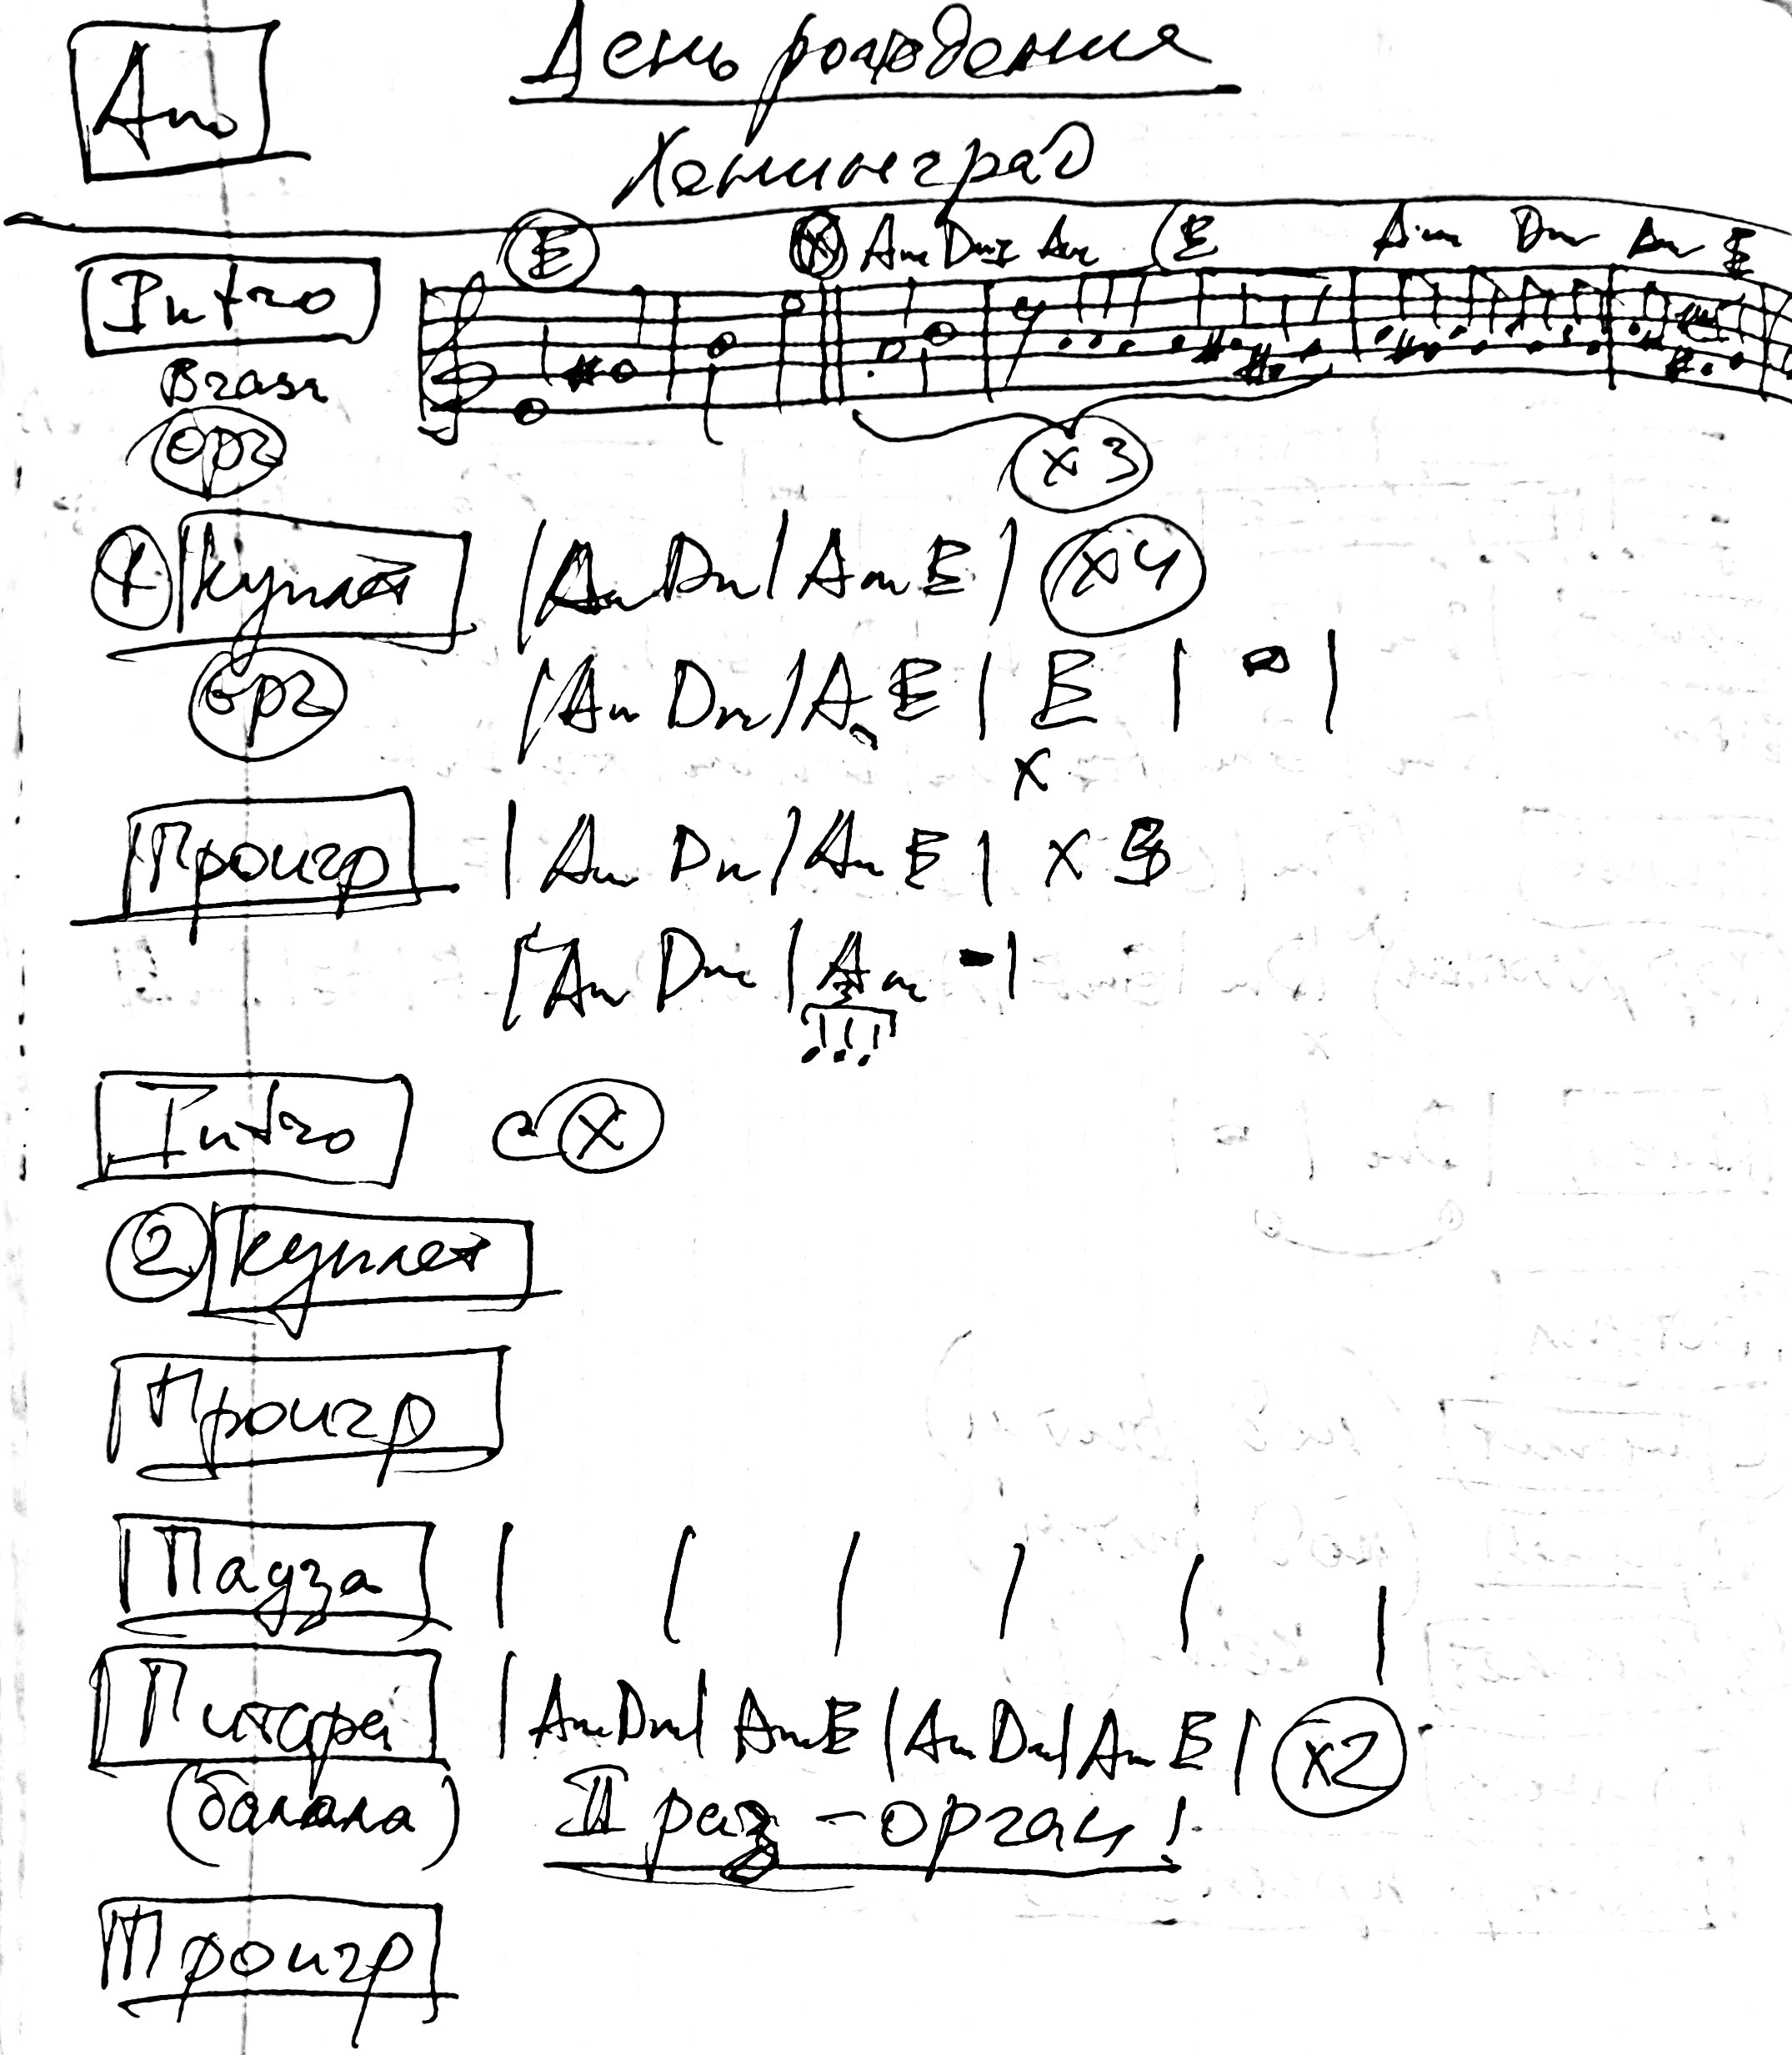 Am
День рождения
Ленинград
E Ⓧ Am Dm Am E Am Dm Am E
Intro
Brass
орг
x3
1 куплет | Am Dm | Am E | x4
орг | Am Dm | Am E | E | - |
x
Проигр | Am Dm | Am E | x 3
| Am Dm | Am - |
Intro с Ⓧ
2 куплет
Проигр
Пауза | | | | | |
Гитара | Am Dm | Am E | Am Dm | Am E | x2
(балала) II раз - орган!
Проигр